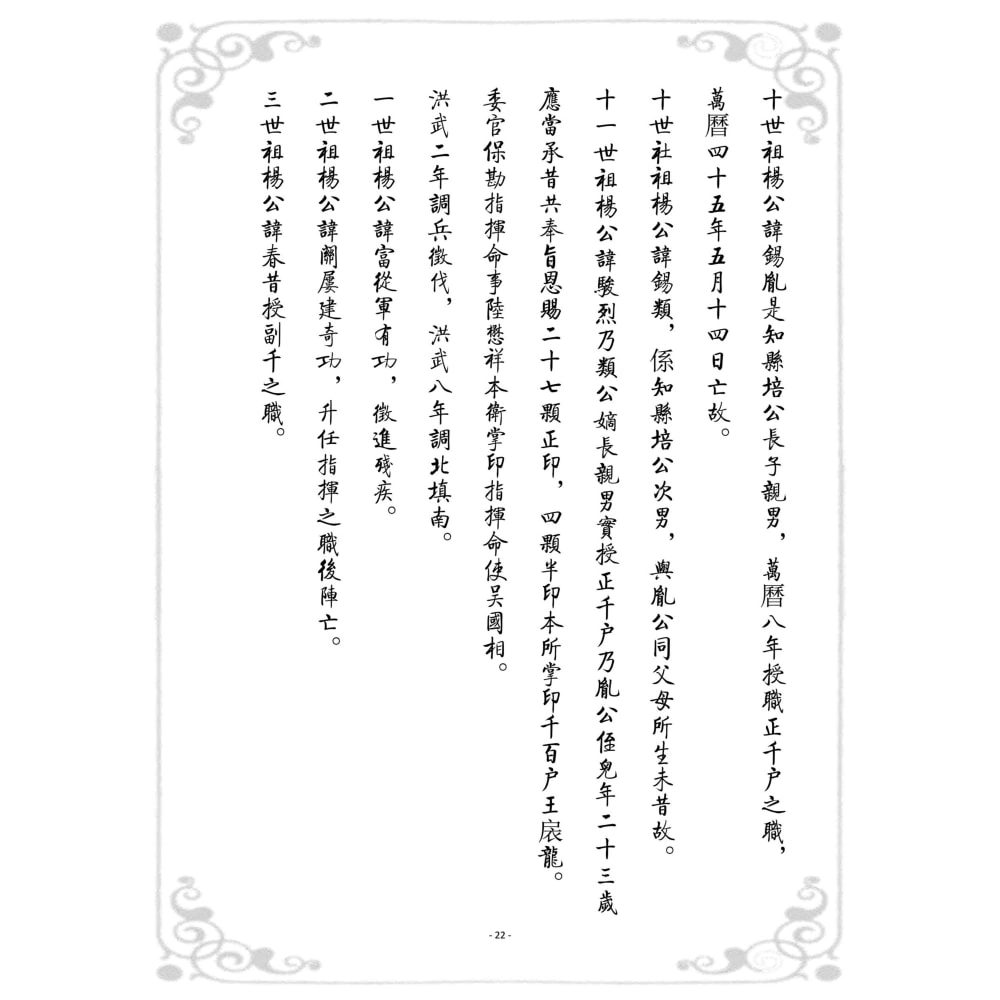 十世祖楊公諱錫胤是知縣培公長子親男，萬曆八年授職正千户之職，
萬曆四十五年五月十四日亡故。
十世社祖楊公諱錫類，係知縣培公次男，與胤公同父母所生未昔故。
十一世祖楊公諱駿烈乃類公嫡長親男實授正千户乃胤公侄兒年二十三歲
應當承昔共奉旨恩賜二十七顆正印，四顆半印本所掌印千百户王扆龍。
委官保勘指揮命事陸懋祥本衛掌印指揮命使吴國相。
洪武二年調兵徵伐，洪武八年調北填南。
一世祖楊公諱富從軍有功，徵進殘疾。
二世祖楊公諱關屢建奇功，升任指揮之職後陣亡。
三世祖楊公諱春昔授副千之職。
- 22 -